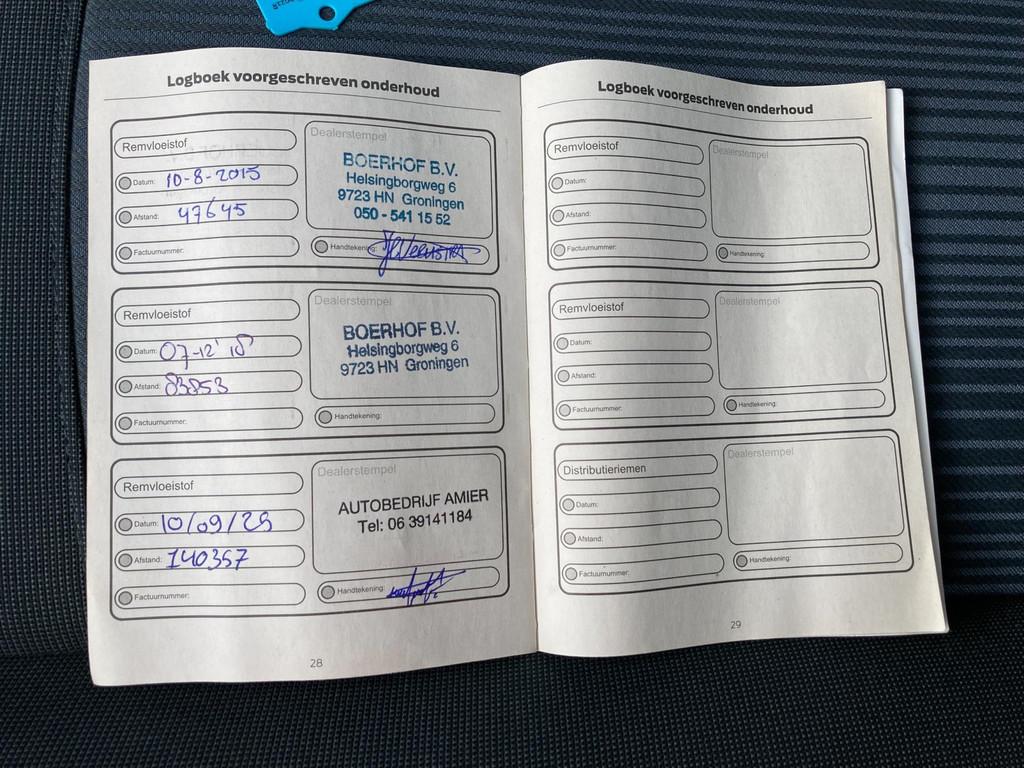 Logboek voorgeschreven onderhoud
Remvloeistof
Dealerstempel
Datum: 10-8-2015
Afstand: 47645
Factuurnummer:
BOERHOF B.V.
Helsingborgweg 6
9723 HN Groningen
050 - 541 15 52
Handtekening:
Remvloeistof
Dealerstempel
Datum: 07-12' 18
Afstand: 83853
Factuurnummer:
BOERHOF B.V.
Helsingborgweg 6
9723 HN Groningen
Handtekening:
Remvloeistof
Dealerstempel
Datum: 10/09/25
Afstand: 140357
Factuurnummer:
AUTOBEDRIJF AMIER
Tel: 06 39141184
Handtekening:
28
Logboek voorgeschreven onderhoud
Remvloeistof
Dealerstempel
Datum:
Afstand:
Factuurnummer:
Handtekening:
Remvloeistof
Dealerstempel
Datum:
Afstand:
Factuurnummer:
Handtekening:
Distributieriemen
Dealerstempel
Datum:
Afstand:
Factuurnummer:
Handtekening:
29